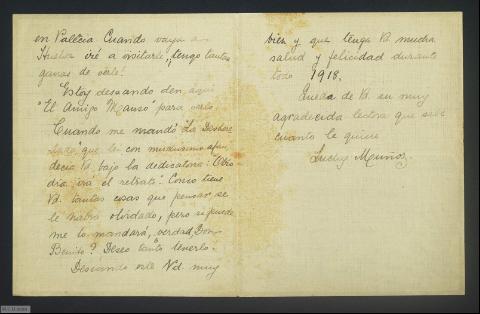 en Valecia Cuando vaya a
Huelva iré a visitarle, ¡tengo tantas
ganas de verle!
Estoy deseando den aqui
"El Amigo Manso" para verlo.
Cuando me mandó "La Deshere
dada" que lei con muchisimo afan,
decia Vd. bajo la dedicatoria: "Otro
dia irá el retrato". Como tiene
Vd. tantas cosas que pensar se
le habrá olvidado, pero si puede
me lo mandará, verdad Don
Benito? Deseo tanto tenerlo!
Deseando esté Vd. muy
bien y que tenga Vd. mucha
salud y felicidad durante
todo 1918.
Queda de Vd. su muy
agradecida lectora que sabe
cuanto le quiere
Muñoz